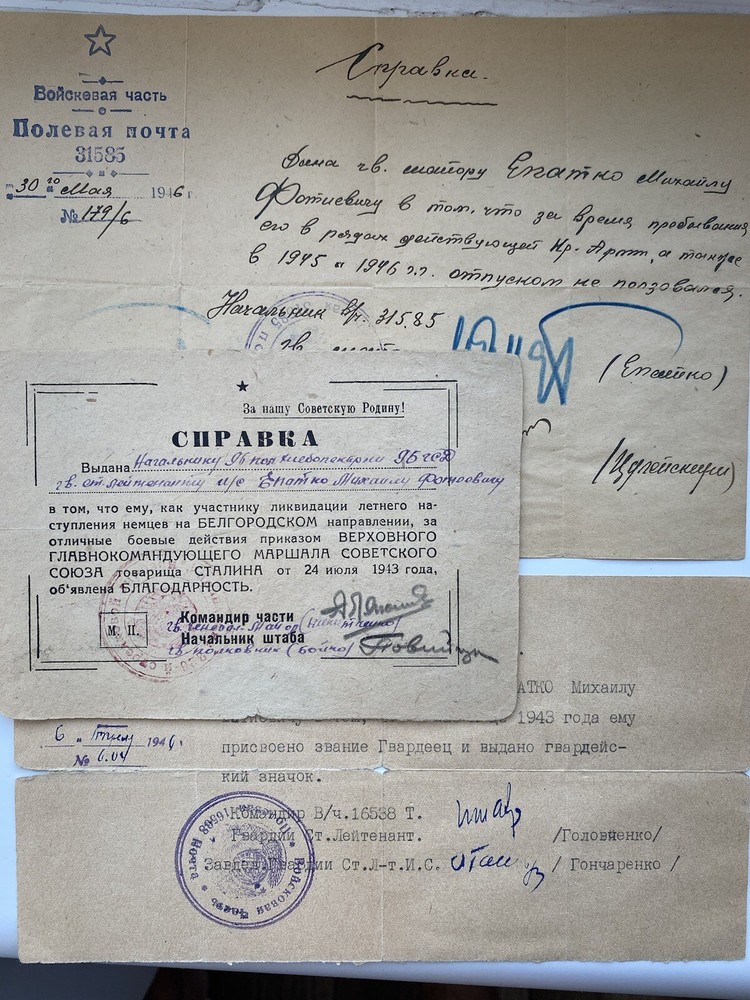 Войсковая часть
Полевая почта
31585
"30 го" Мая 1946 г.
№ 179/6
Справка.
Дана гв. майору Епатко Михаилу
Фотиевичу в том, что за время пребывания
его в рядах действующей Кр. Армии, а также
в 1945 и 1946 г.г. отпуском не пользовался.
Начальник в/ч. 31585
гв.
(Епатко)
За нашу Советскую Родину!
СПРАВКА
Выдана Начальнику 96 пол хлебопекарни 95 гсд
гв. ст. лейтенанту и/с Епатко Михаилу Фотиевичу
в том, что ему, как участнику ликвидации летнего на-
ступления немцев на БЕЛГОРОДСКОМ направлении, за
отличные боевые действия приказом ВЕРХОВНОГО
ГЛАВНОКОМАНДУЮЩЕГО МАРШАЛА СОВЕТСКОГО
СОЮЗА товарища СТАЛИНА от 24 июля 1943 года,
об'явлена БЛАГОДАРНОСТЬ.
М. П.
Командир части
гв. генерал-майор
Начальник штаба
гв. полковник (Бойко)
АТКО Михаилу
1943 года ему
присвоено звание Гвардеец и выдано гвардейс-
кий значок.
6
194
№
Командир В/ч.16538 Т.
Гвардии Ст.Лейтенант. /Головченко/
Завдел Гвардии Ст.Л-т.И.С. / Гончаренко /
Войсковая часть Полевая Почта